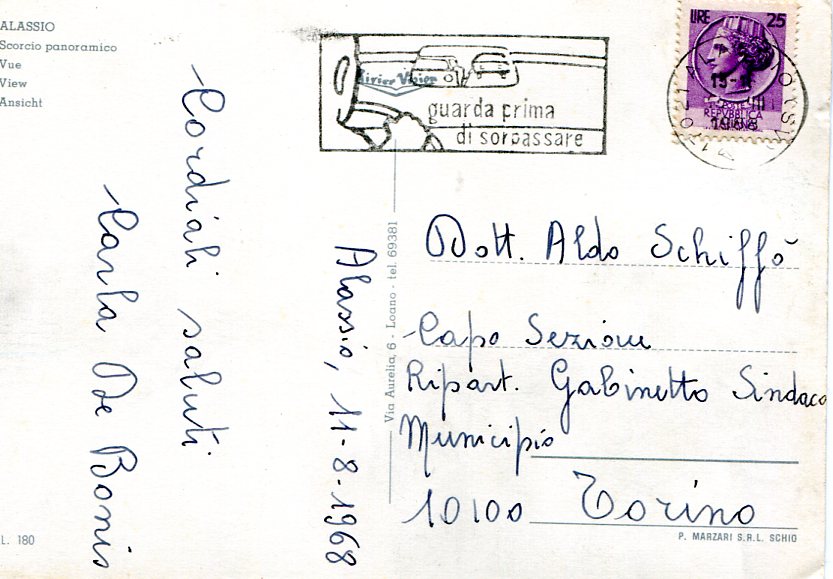 ALASSIO
Scorcio panoramico
Vue
View
Ansicht
Cordiali saluti
Carla De Bonis
Alassio, 11-8-1968
guarda prima
di sorpassare
LIRE 25
REPUBBLICA
ITALIANA
Via Aurelia, 6 - Loano - tel. 69381
Dott. Aldo Schiffò
Capo Sezione
Ripart. Gabinetto Sindaco
Municipio
10100 Torino
L. 180
P. MARZARI S.R.L. SCHIO